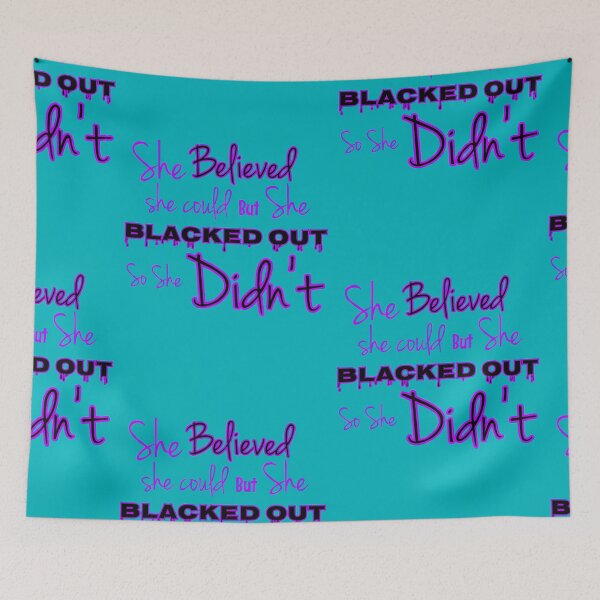 D OUT
dn't
She Believed
she could But She
BLACKED OUT
So She Didn't
BLACKED OUT
So She Didn't
eved
ut She
D OUT
dn't
She Believed
she could But She
BLACKED OUT
She Believed
she could But She
BLACKED OUT
So She Didn't
S
s
B
S
s
B